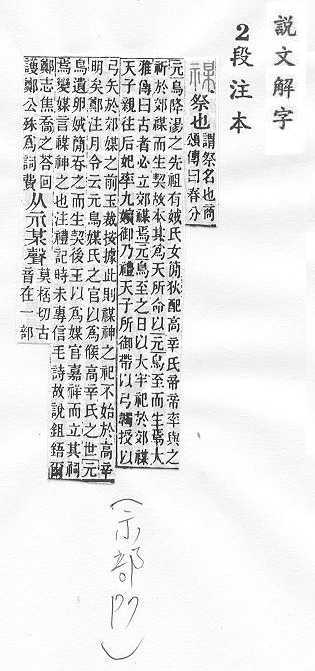 說文解字
2段注本
禖祭也謂祭名也商
頌傳曰春分
元鳥降湯之先祖有娀氏女簡狄配高辛氏帝帝率與之
祈於郊禖而生契故本其爲天所命以元鳥至而生焉大
雅傳曰古者必立郊禖焉元鳥至之日以大牢祀於郊禖
天子親往后妃率九嬪御乃禮天子所御帶以弓韣授以
弓矢於郊禖之前玉裁按據此則禖神之祀不始於高辛
明矣鄭注月令云元鳥媒氏之官以爲候高辛氏之世元
鳥遺卵娀簡吞之而生契後王以爲媒官嘉祥而立其祠
焉變媒言禖神之也注禮記時未專信毛詩故說鉏鋙爾
鄭志焦喬之荅回
護鄭公殊爲詞費从示某聲莫桮切古
音在一部
(示部P7)